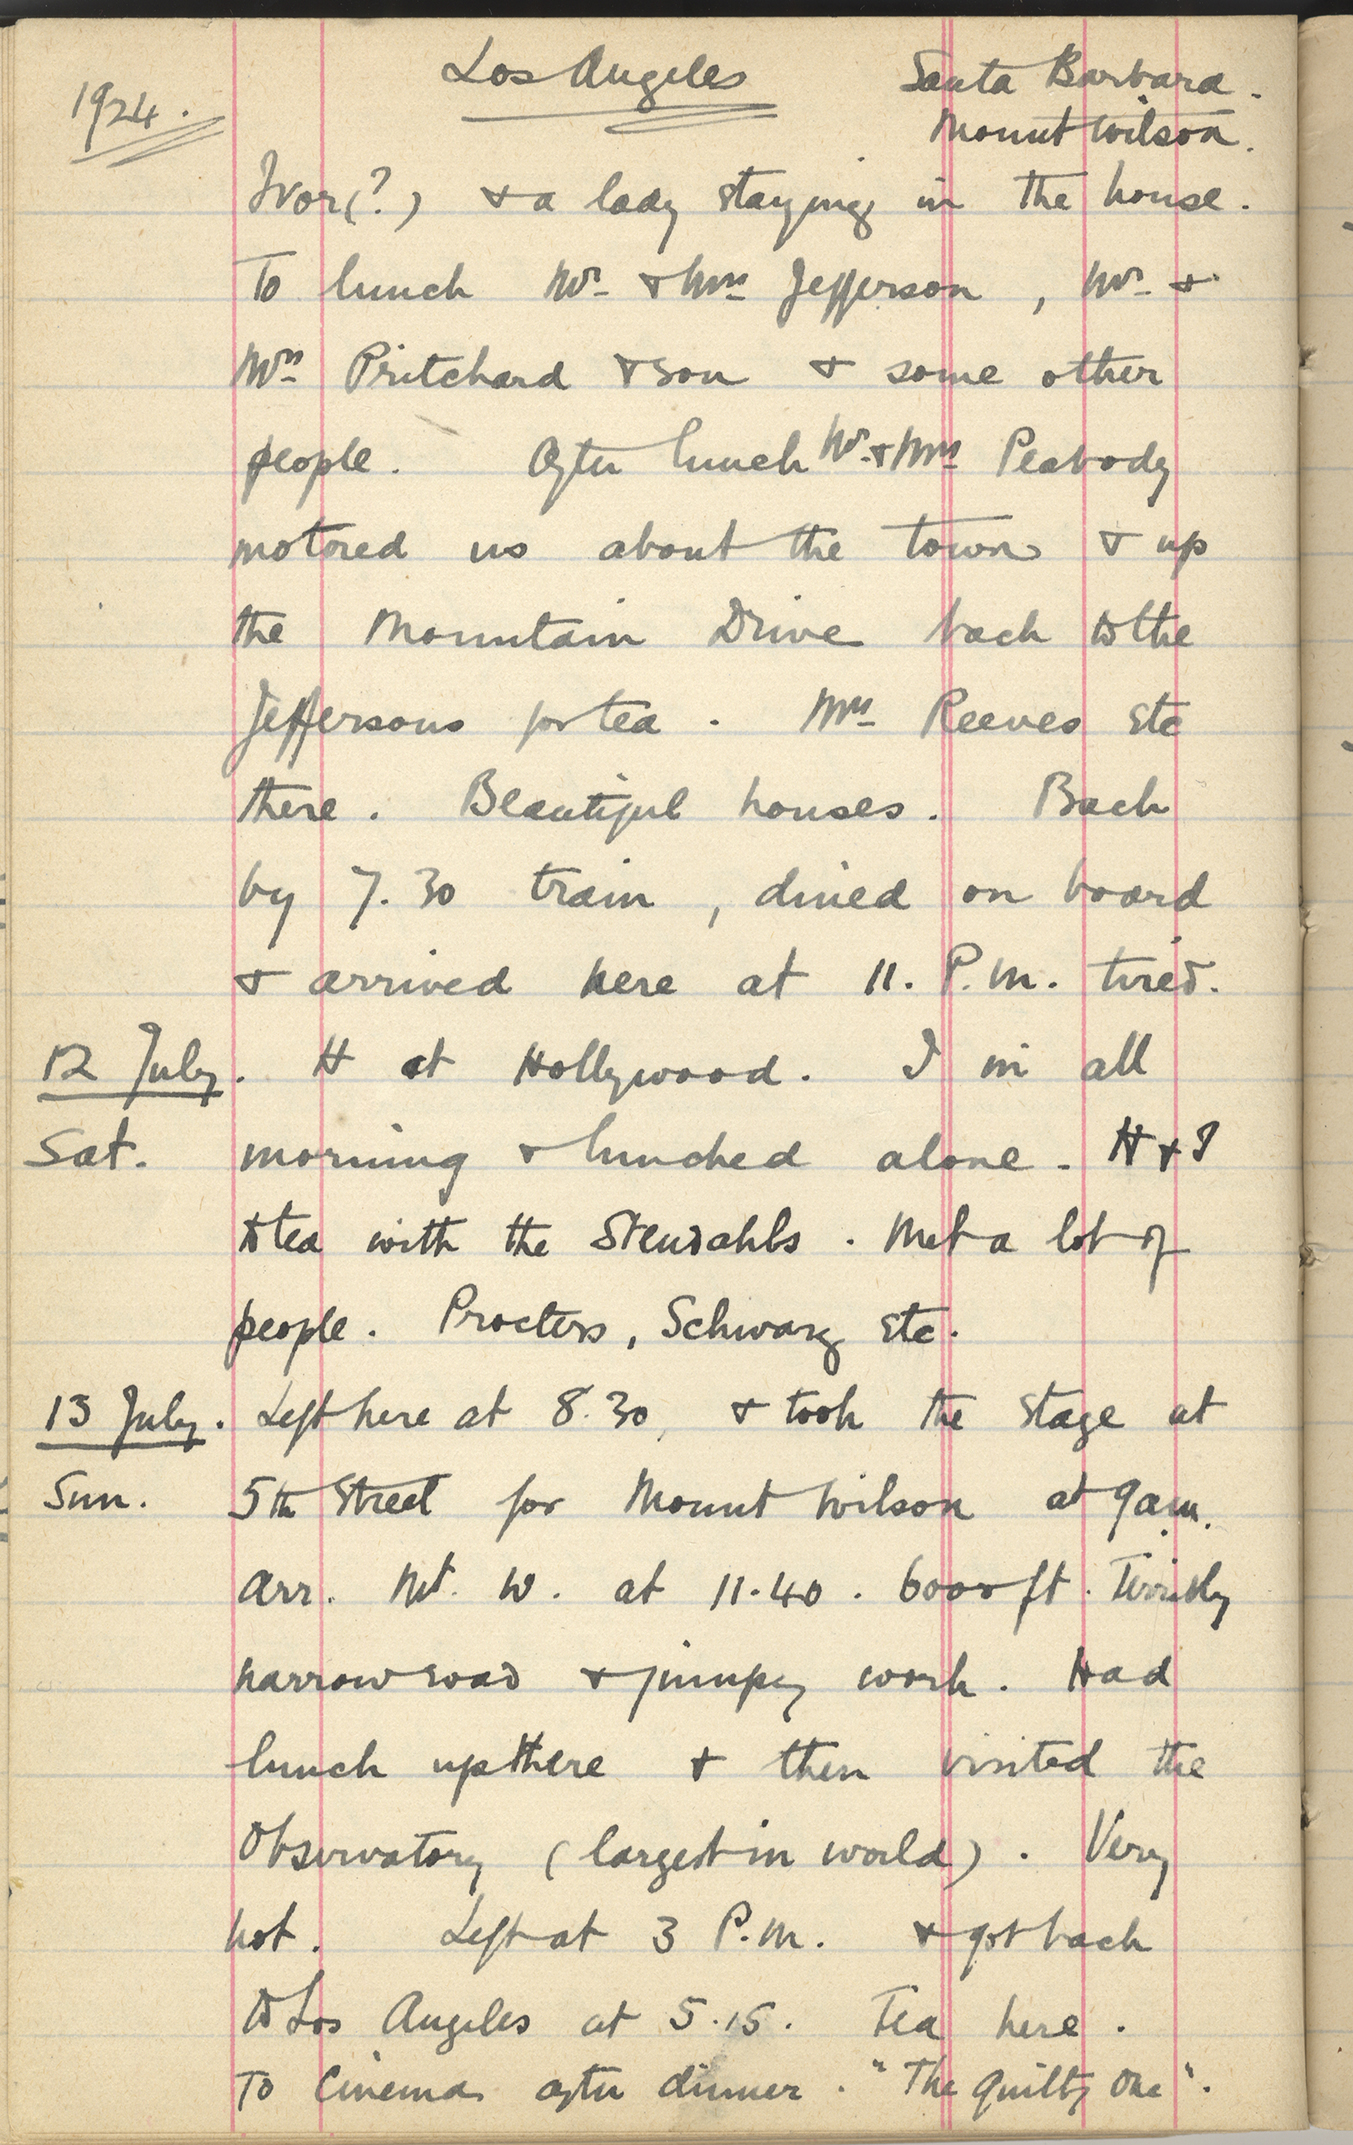 1924.
Los Angeles
Santa Barbara.
Mount Wilson.
Ivor(?) & a lady staying in the house.
To lunch Mr. & Mrs Jefferson, Mr. &
Mrs Pritchard & son & some other
people. After lunch Mr. & Mrs Peabody
motored us about the town & up
the Mountain Drive back to the
Jeffersons for tea. Mrs Reeves etc
there. Beautiful houses. Back
by 7.30 train, dined on board
& arrived here at 11. P.M. tired.
12 July. H at Hollywood. I in all
Sat. morning & lunched alone. H & I
to tea with the Stendahls. Met a lot of
people. Procters, Schwarz etc.
13 July. Left here at 8.30, & took the stage at
Sun. 5th Street for Mount Wilson at 9am.
arr. Mt. W. at 11.40. 6000 ft. Terribly
narrow road & jumpy work. Had
lunch up there & then visited the
Observatory (largest in world). Very
hot. Left at 3 P.M. & got back
to Los Angeles at 5.15. Tea here.
To Cinema after dinner. "The Guilty One".